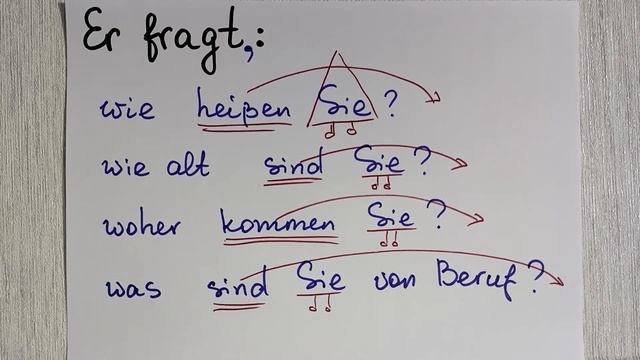 Er fragt,:
wie heißen Sie?
wie alt sind Sie?
woher kommen Sie?
was sind Sie von Beruf?